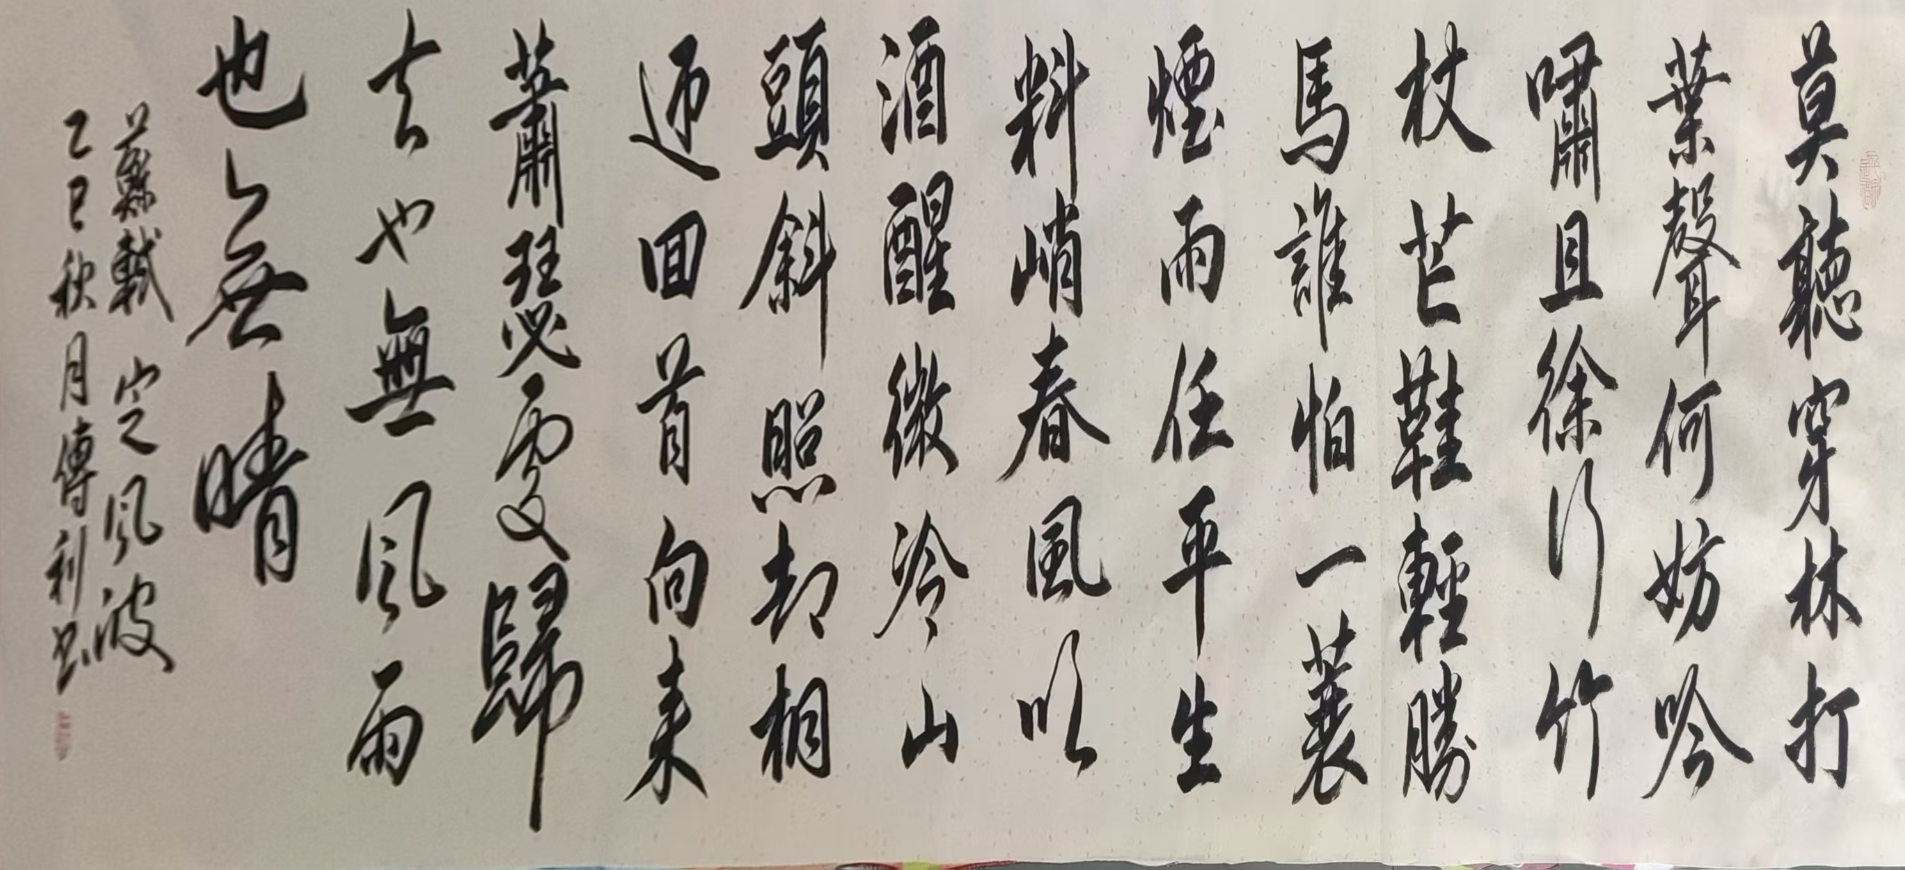 莫聽穿林打
葉聲何妨吟
嘯且徐行竹
杖芒鞋輕勝
馬誰怕一蓑
煙雨任平生
料峭春風吹
酒醒微冷山
頭斜照却相
迎回首向来
蕭瑟處歸
去也無風雨
也無晴
蘇軾定风波
乙巳秋月傅利书